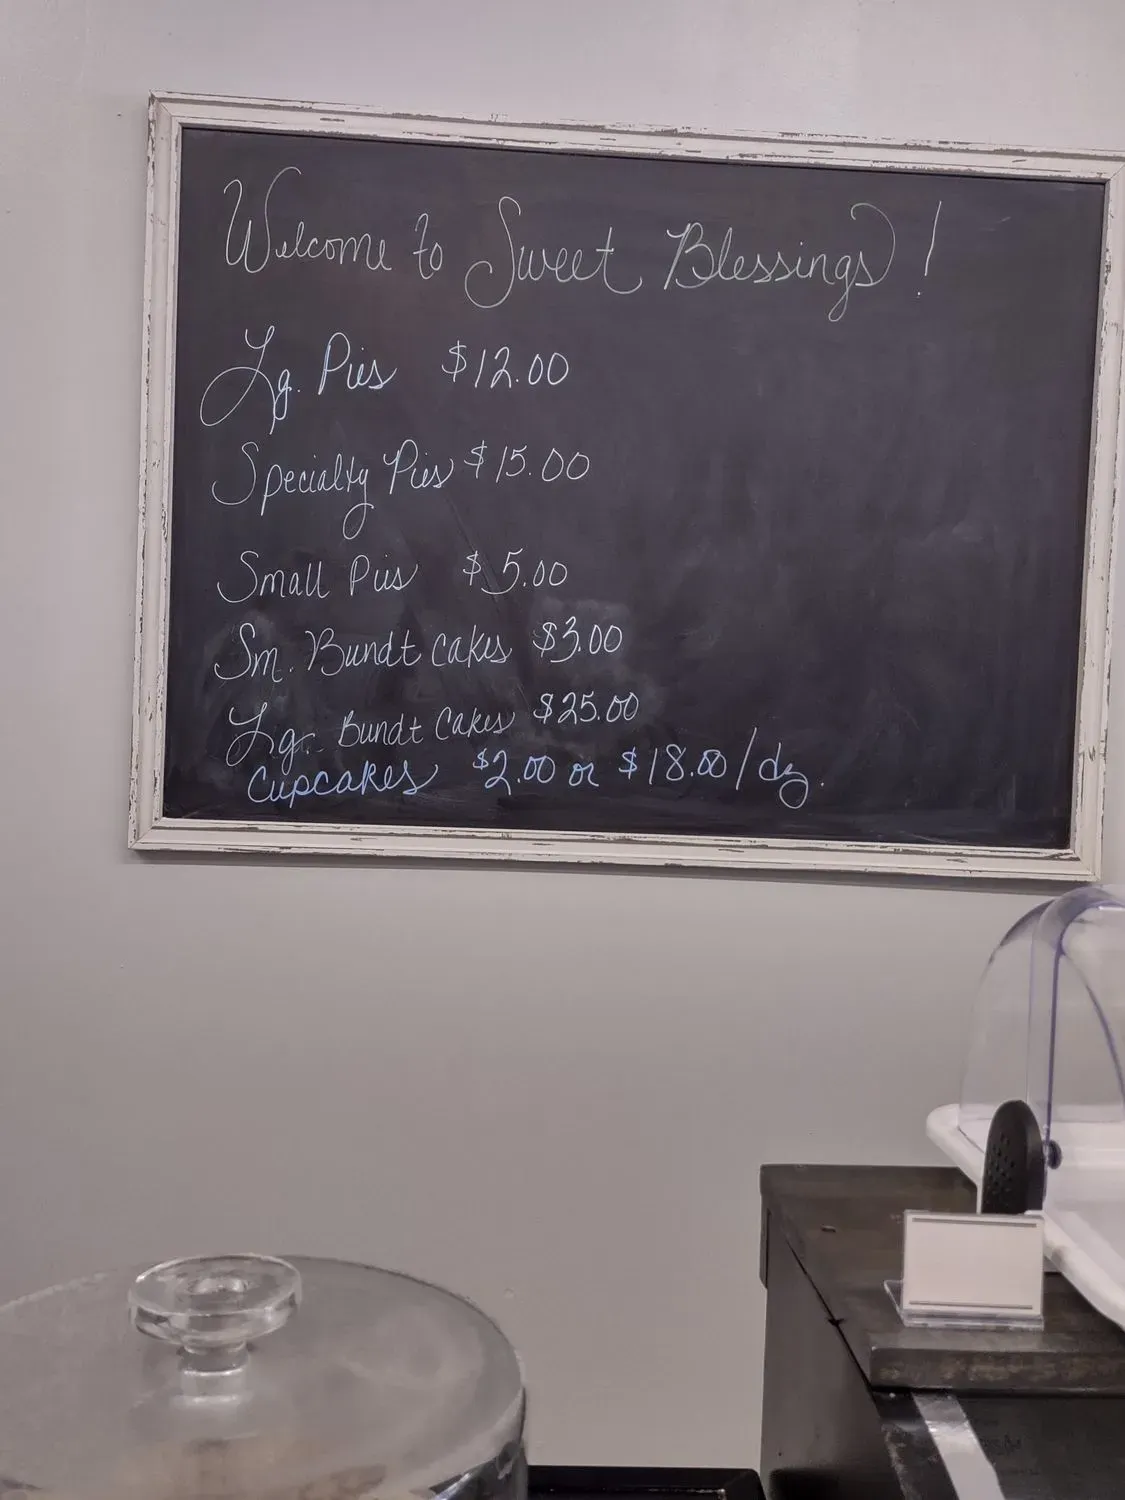 Welcome to Sweet Blessings!
Lg. Pies $12.00
Specialty Pies $15.00
Small Pies $5.00
Sm. Bundt cakes $3.00
Lg. Bundt Cakes $25.00
Cupcakes $2.00 or $18.00/dz.